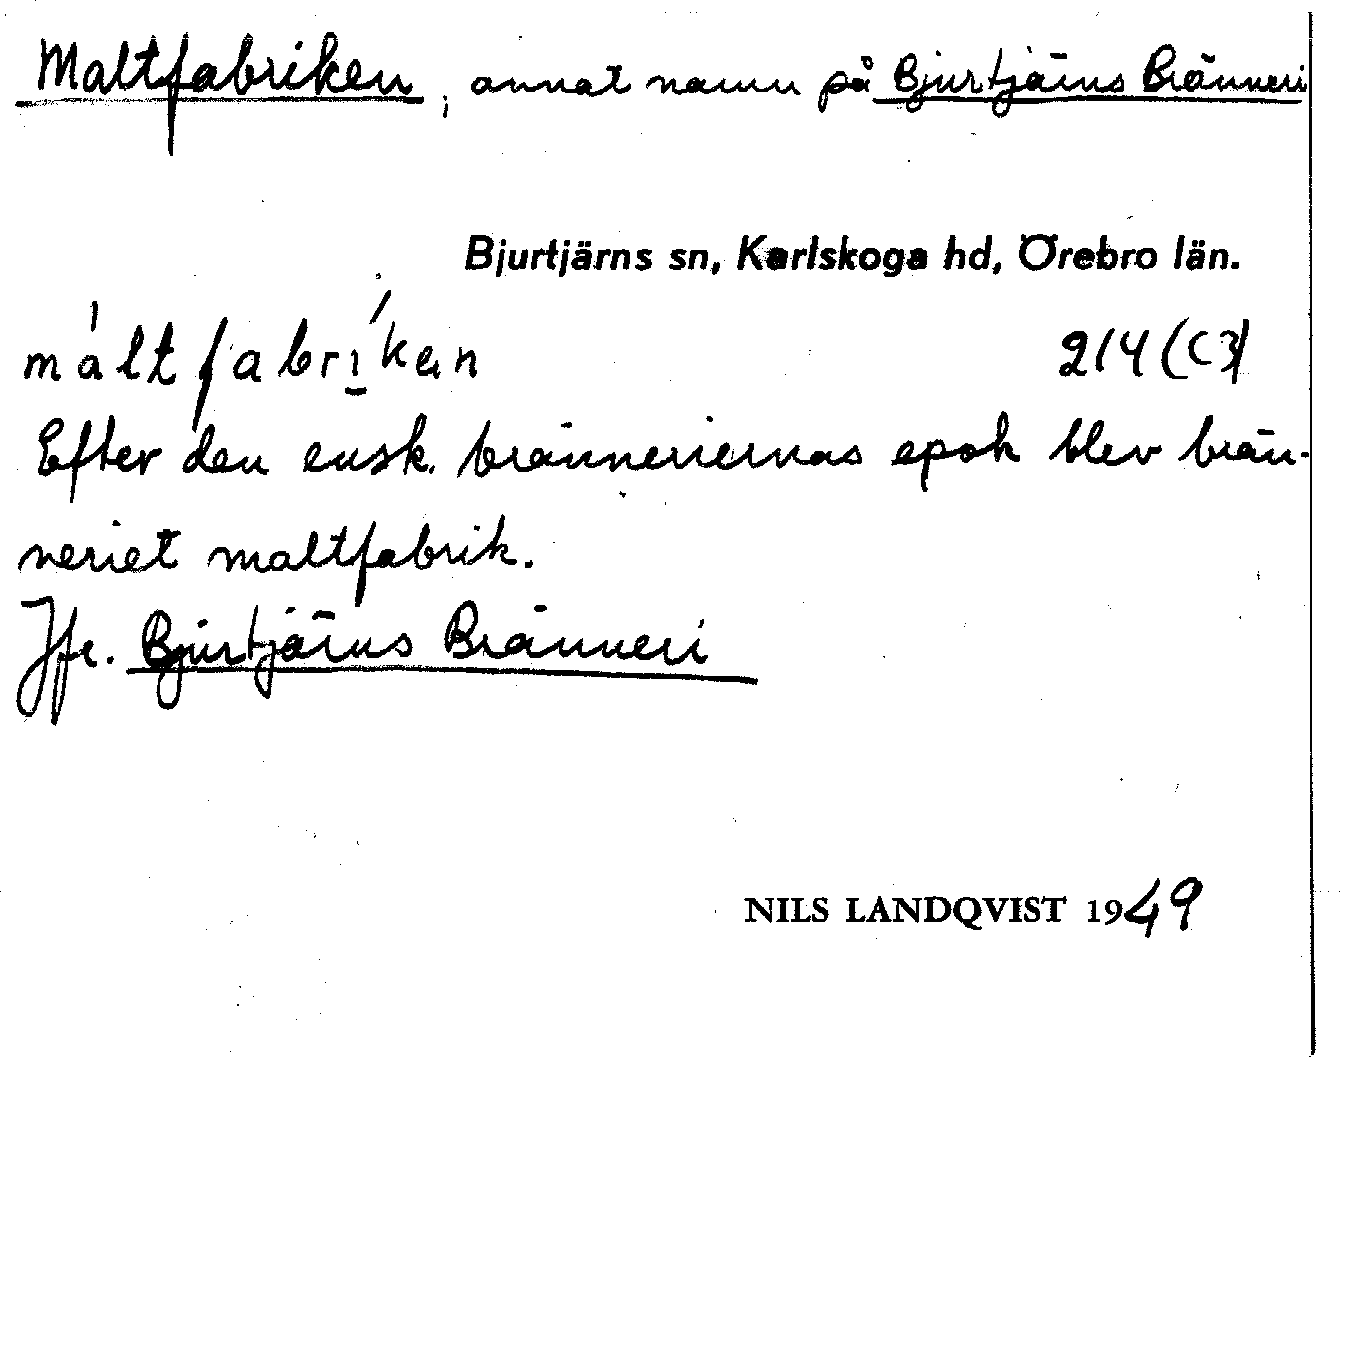 Maltfabriken, annat namn på Bjurtjärns Bränneri
Bjurtjärns sn, Karlskoga hd, Örebro län.
máltfabríken 214 (C3)
Efter den ensk. bränneriernas epok blev brän-
neriet maltfabrik.
Jfr. Bjurtjärns Bränneri
NILS LANDQVIST 1949